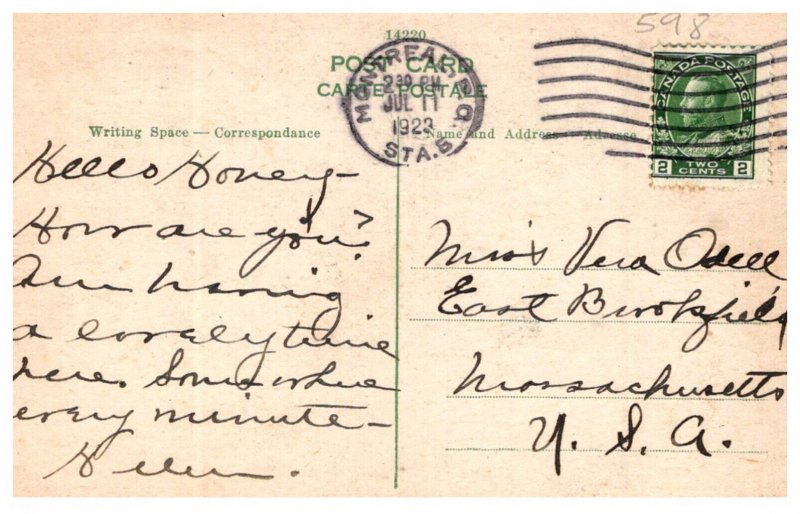 598
14220
POST CARD
CARTE POSTALE
MONTREAL P.Q.
2 30 PM
JUL 11
1923
STA. B
CANADA POSTAGE
2 TWO CENTS 2
Writing Space — Correspondance
Name and Address — Adresse
Hello Honey -
How are you?
Am having
a lovely time
here. Somewhere
every minute -
Helen.
Miss Vera Odell
East Brookfield
Massachusetts
U. S. A.